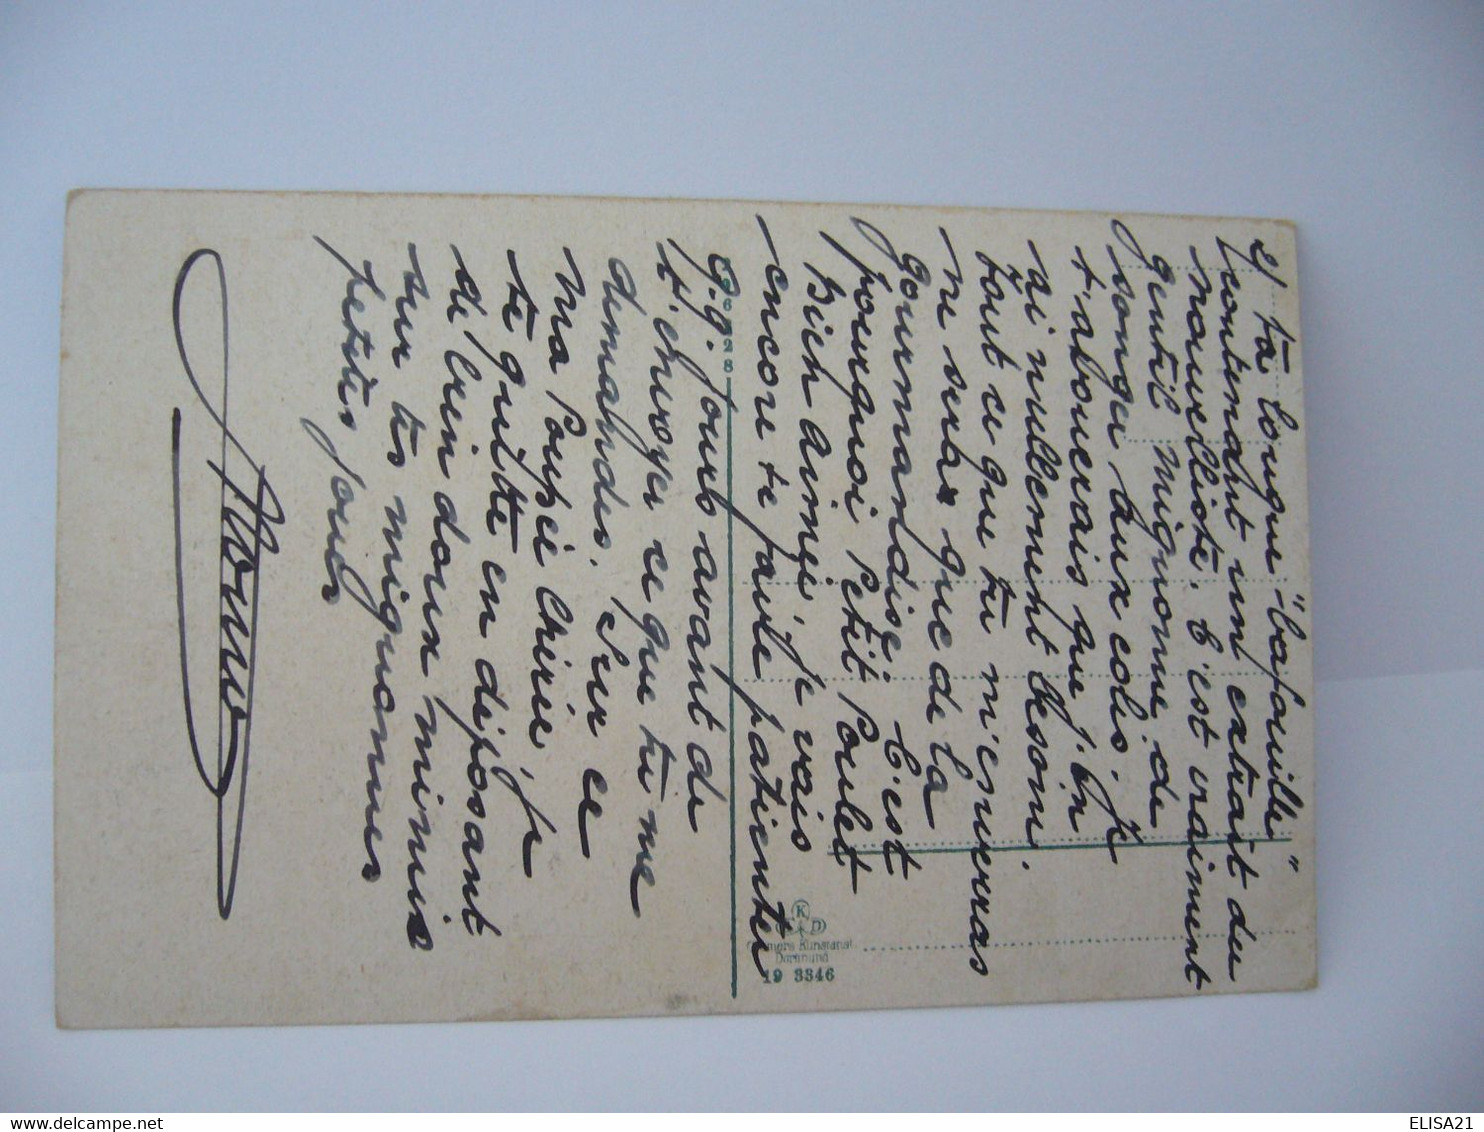 2) Ta longue "bafouille"
contenant un extrait du
nouvelliste. C'est vraiment
gentil mignonne de
songer aux colis. Je
t'aborerais que j'en
ni nullement besoin.
tout ce que tu m'enverras
ne sera que de la
gourmandise. C'est
pourquoi Petit Poulet
Bien Aimé, je vais
encore te faire patienter
qq. jours avant de
t'envoyer ce que tu me
demandes. Sur ce
ma Poupée Chérie, je
te quitte en déposant
de bien doux mimis
sur tes mignonnes
petites joues
66228
K
D
Cramers Kunstanst.
Dortmund
19 3346
ELISA21